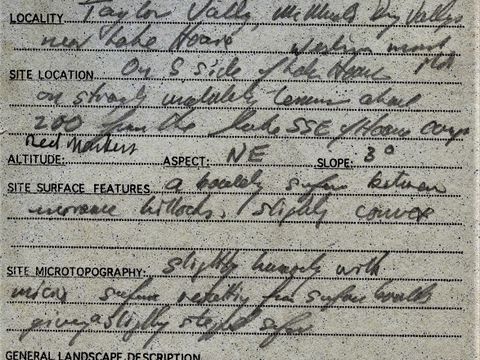 LOCALITY Taylor Vally, McMurdo Dry Valleys
near Lake Hoare Western most
SITE LOCATION On S side of Lake Hoare
on straight
200 from the lake SSE of Hoare camp
Red Markers
ALTITUDE: ASPECT: NE SLOPE: 3°
SITE SURFACE FEATURES a bouldery surface between
moraine hillocks, slightly convex
SITE MICROTOPOGRAPHY: slightly humpy with
micro surface
giving a slightly stepped surface
GENERAL LANDSCAPE DESCRIPTION